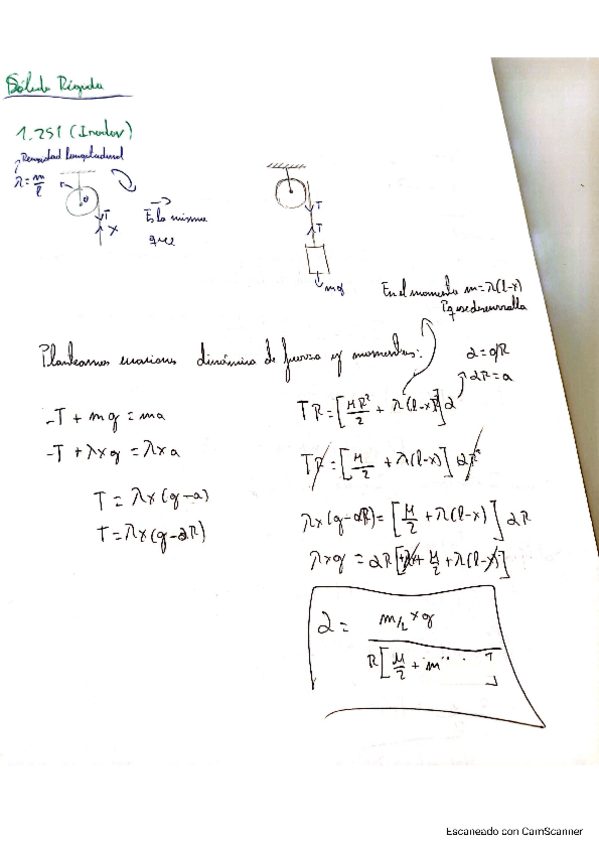 Sólido Rígido
1.251 (Irodov)
Densidad longitudinal
λ = m/l
r
T
x
Es lo mismo
que
T
T
mg
En el momento m = λ(l-x)
Pq se desenrolla
Planteamos ecuaciones dinámica de fuerza y momentos:
α = a/R
αR = a
-T + mg = ma
TR = [MR²/2 + λ(l-x)R²]α
-T + λxg = λxa
TR = [M/2 + λ(l-x)] αR²
T = λx(g-a)
λx(g-αR) = [M/2 + λ(l-x)] αR
T = λx(g-αR)
λxg = αR[λx + M/2 + λ(l-x)]
α = m/l xg / R[M/2 + m]
Escaneado con CamScanner